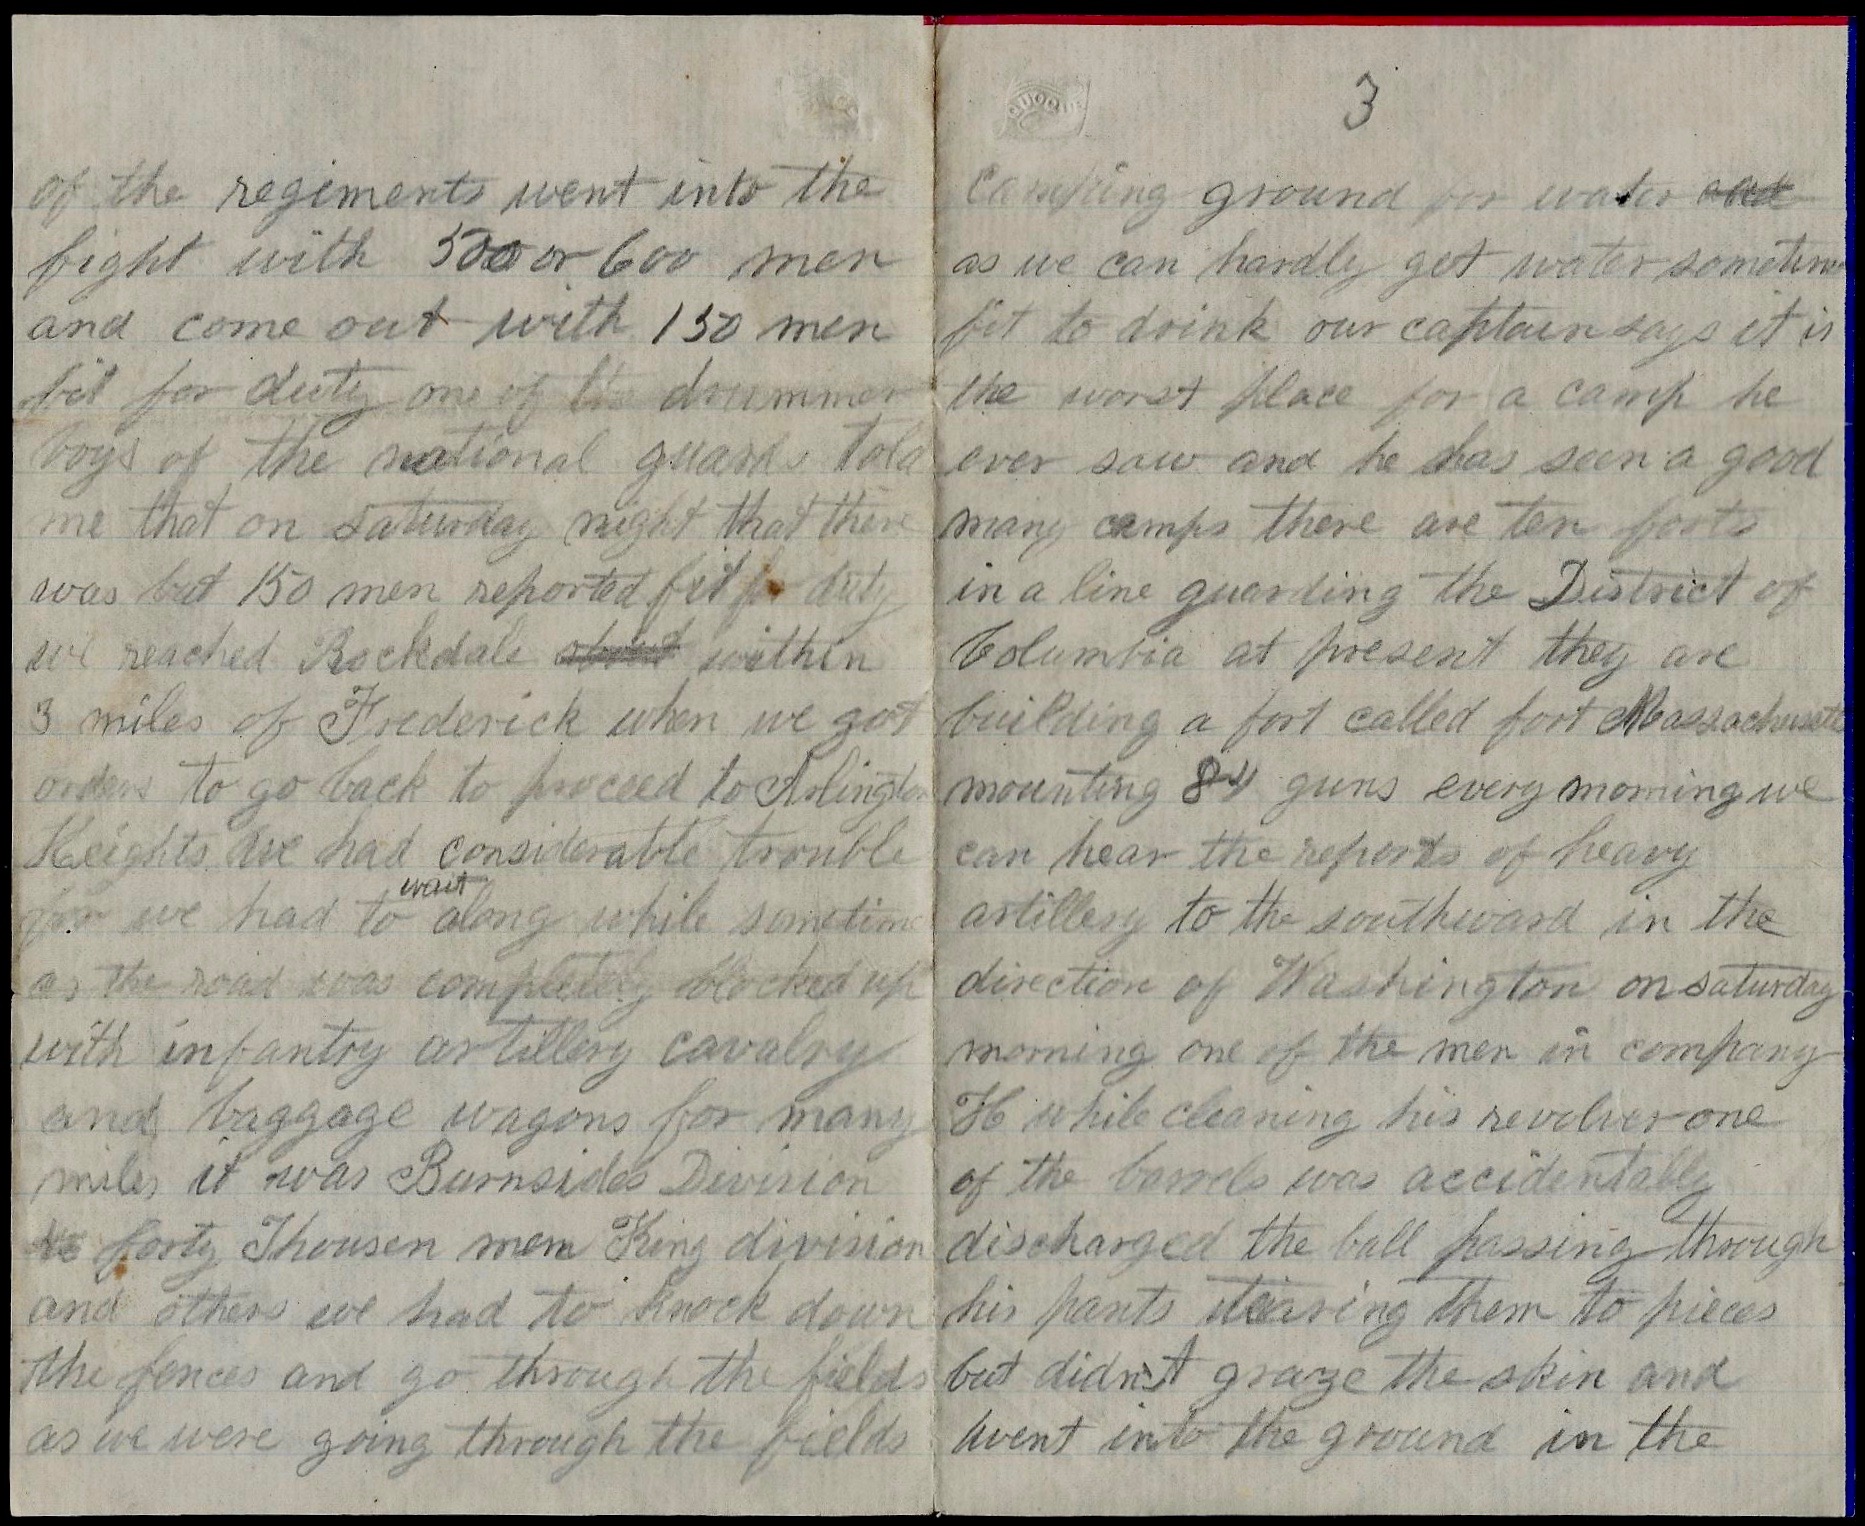 of the regiments went into the
fight with 500 or 600 men
and come out with 150 men
fit for duty one of the drummer
boys of the national guards told
me that on saturday night that there
was but 150 men reported fit for duty
we reached Rockdale about within
3 miles of Frederick when we got
orders to go back to proceed to Arlington
Heights we had considerable trouble
for we had to wait along while sometime
as the road was completely blocked up
with infantry artillery cavalry
and baggage wagons for many
miles it was Burnsides Division
forty Thousen men King division
and others we had to knock down
the fences and go through the fields
as we were going through the fields
3
camping ground for water and
as we can hardly get water sometimes
fit to drink our captain says it is
the worst place for a camp he
ever saw and he has seen a good
many camps there are ten forts
in a line guarding the District of
Columbia at present they are
building a fort called fort Massachusetts
mounting 84 guns every morning we
can hear the reports of heavy
artillery to the southward in the
direction of Washington on saturday
morning one of the men in company
H while cleaning his revolver one
of the barrels was accidentally
discharged the ball passing through
his pants tearing them to pieces
but didn't graze the skin and
went into the ground in the